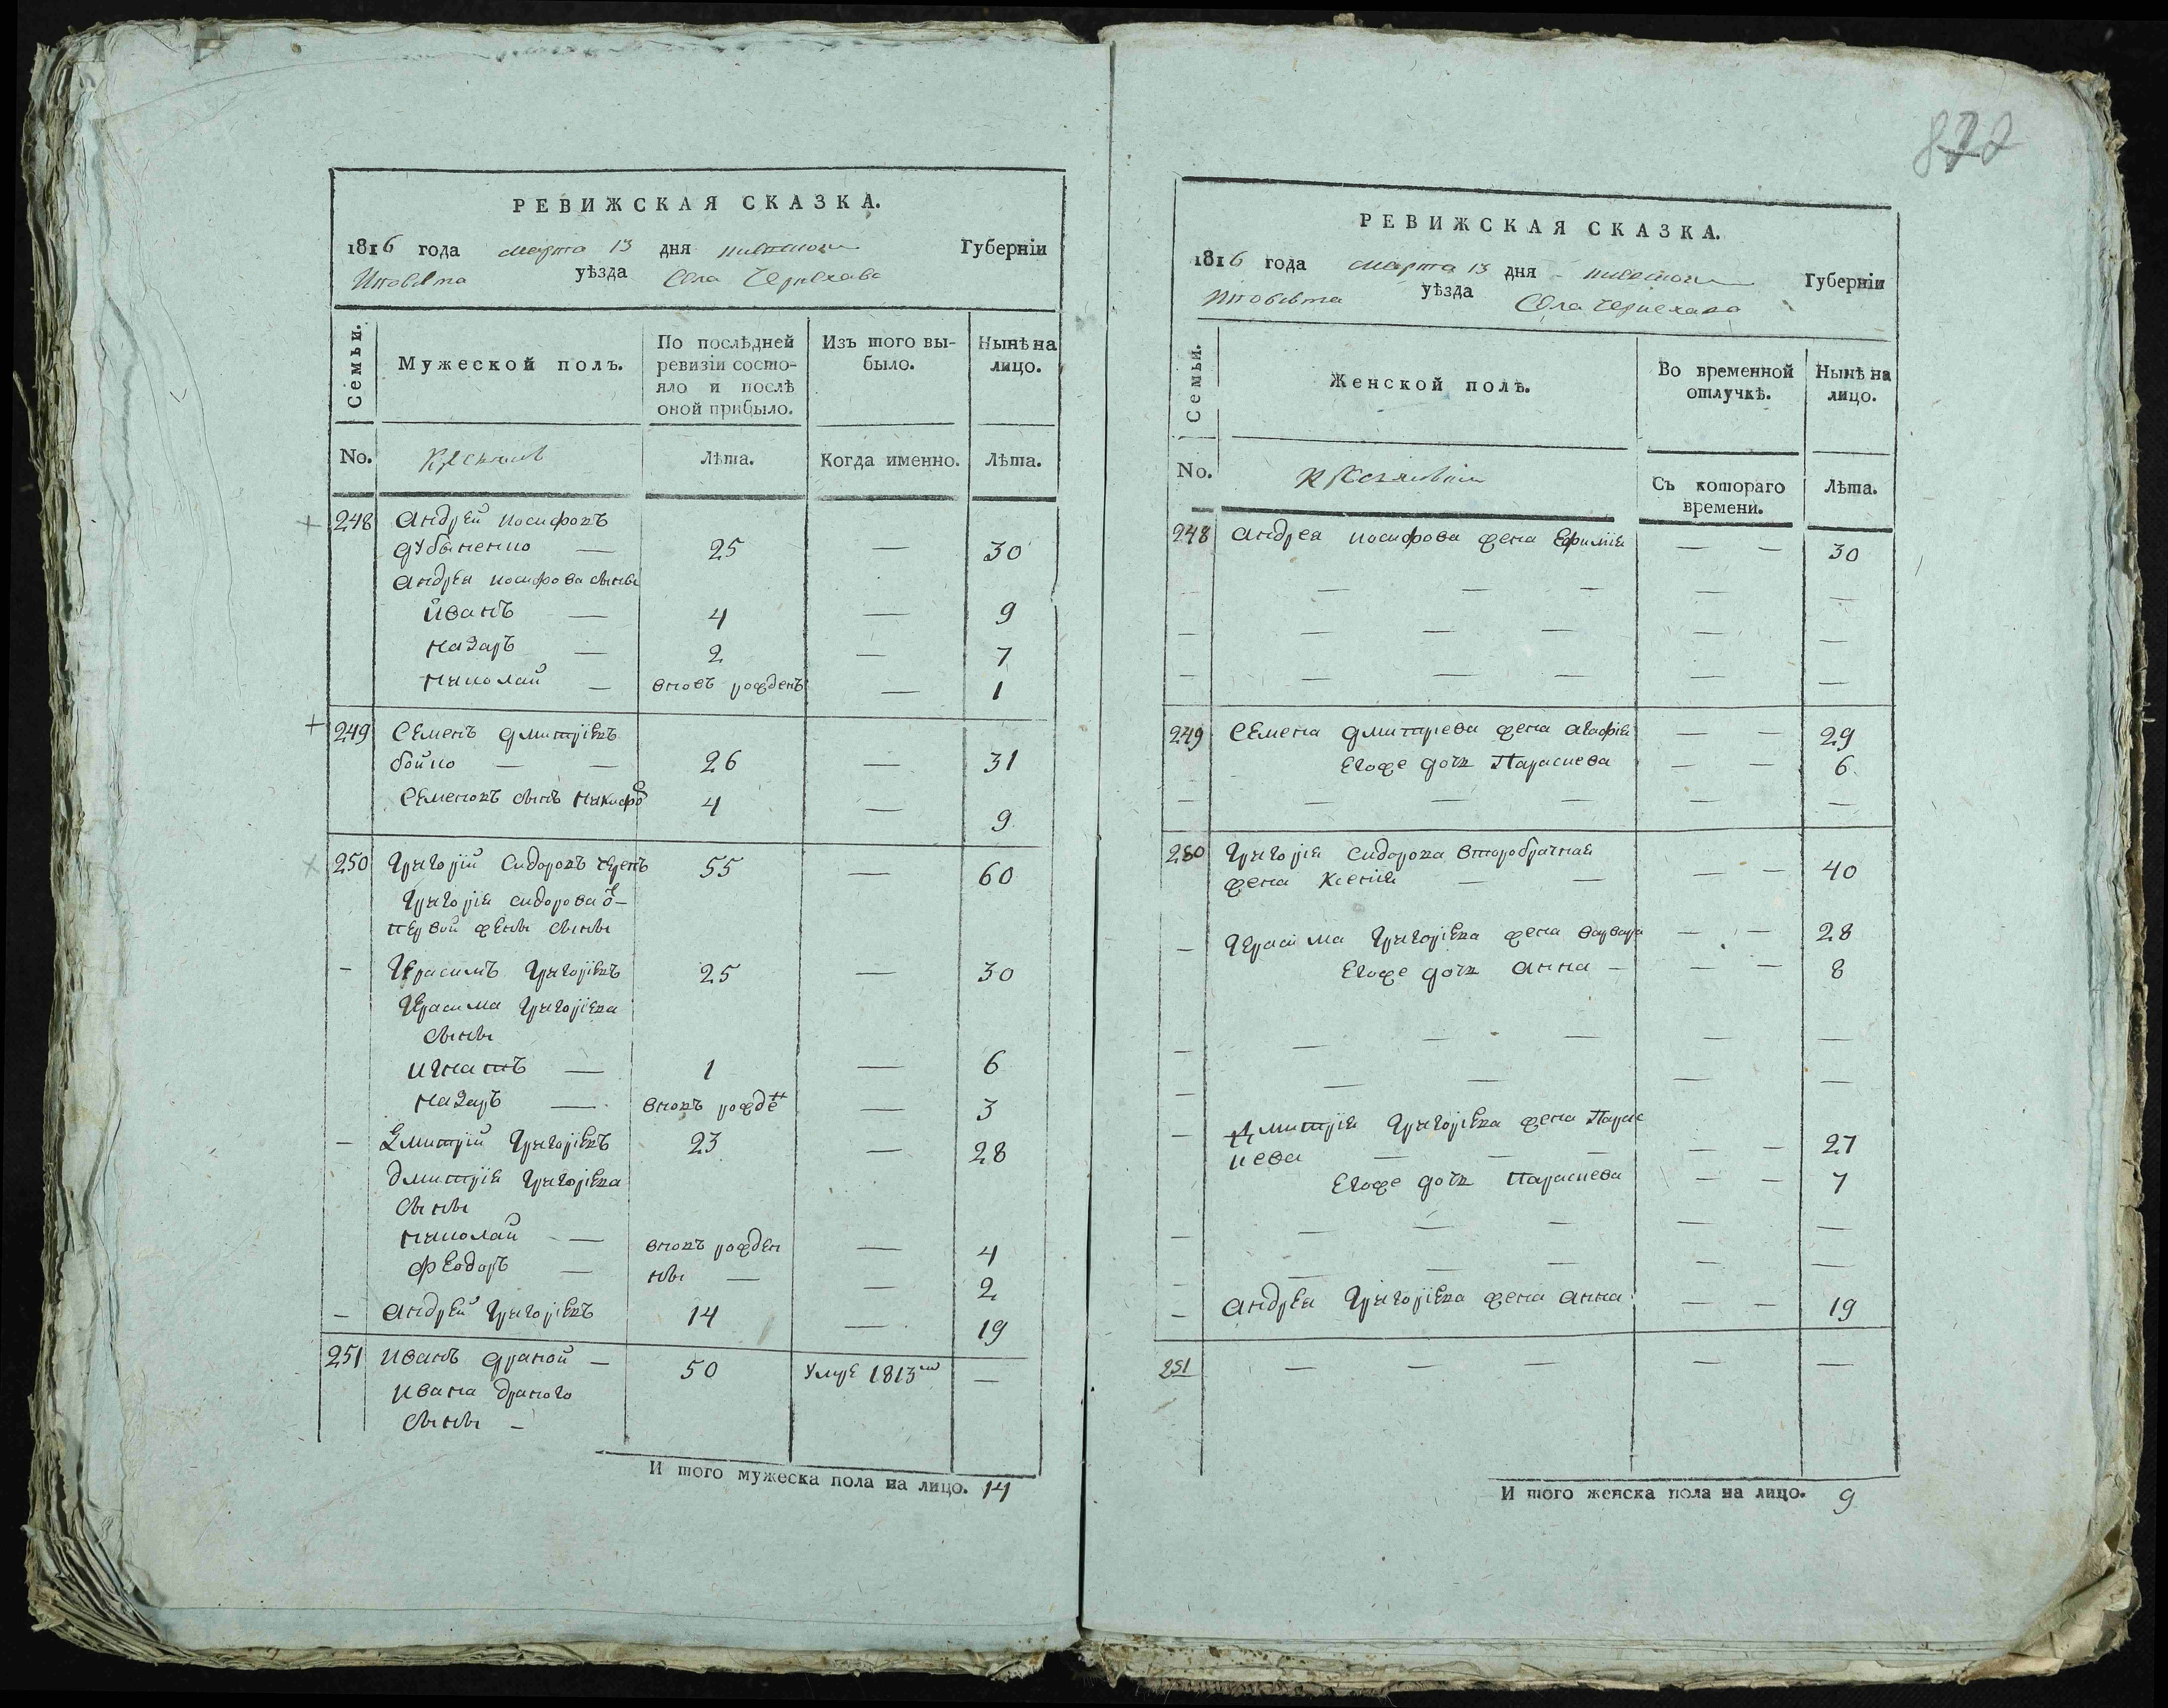 872
РЕВИЖСКАЯ СКАЗКА.
1816 года марта 13 дня Губерніи
уѣзда Села Черняхова
Семьи.
Мужеской полъ.
По послѣдней ревизіи состо-
яло и послѣ
оной прибыло.
Изъ того вы-
было.
Нынѣ на
лицо.
No.
Лѣта.
Когда именно.
Лѣта.
248 Андрей Иосифовъ
— 25 — 30
Андрея Иосифова сыны
Иванъ — 4 — 9
Назаръ — 2 — 7
Николай — вновь рожденъ — 1
249 Семенъ Дмитріевъ
бойко — — 26 — 31
Семеновъ сынъ Никифоръ 4 — 9
250 Григорій Сидоровъ 55 — 60
Григорія Сидорова о-
первой жены сыны
- Герасимъ Григоріевъ 25 — 30
Герасима Григоріева
сыны
Игнатъ — 1 — 6
Назаръ — вновь рожден — 3
— Дмитрій Григоріевъ 23 — 28
Дмитрія Григоріева
сыны
Николай — вновь рожден — 4
Феодоръ — ны — — 2
— Андрей Григоріевъ 14 — 19
251 Иванъ драной — 50 Умре 1813 —
Ивана драного
сыны —
И того мужеска пола на лицо. 14
РЕВИЖСКАЯ СКАЗКА.
1816 года марта 13 дня Губерніи
уѣзда Села Черняхова
Семьи.
Женской полъ.
Во временной
отлучкѣ.
Нынѣ на
лицо.
No.
Съ котораго
времени.
Лѣта.
248 Андрея Иосифова жена Ефимія — — 30
249 Семена Дмитриева жена Агафія — — 29
Егоже дочь Параскева — — 6
250 Григорія Сидорова второбрачная
жена Ксенія — — — — 40
— Герасима Григоріева жена Варвара — — 28
Егоже дочь Анна — — — 8
— Дмитрія Григоріева жена Парас
кева — — — — — 27
Егоже дочь Параскева — — 7
— Андрея Григоріева жена Анна — — 19
251 — — — — —
И того женска пола на лицо. 9